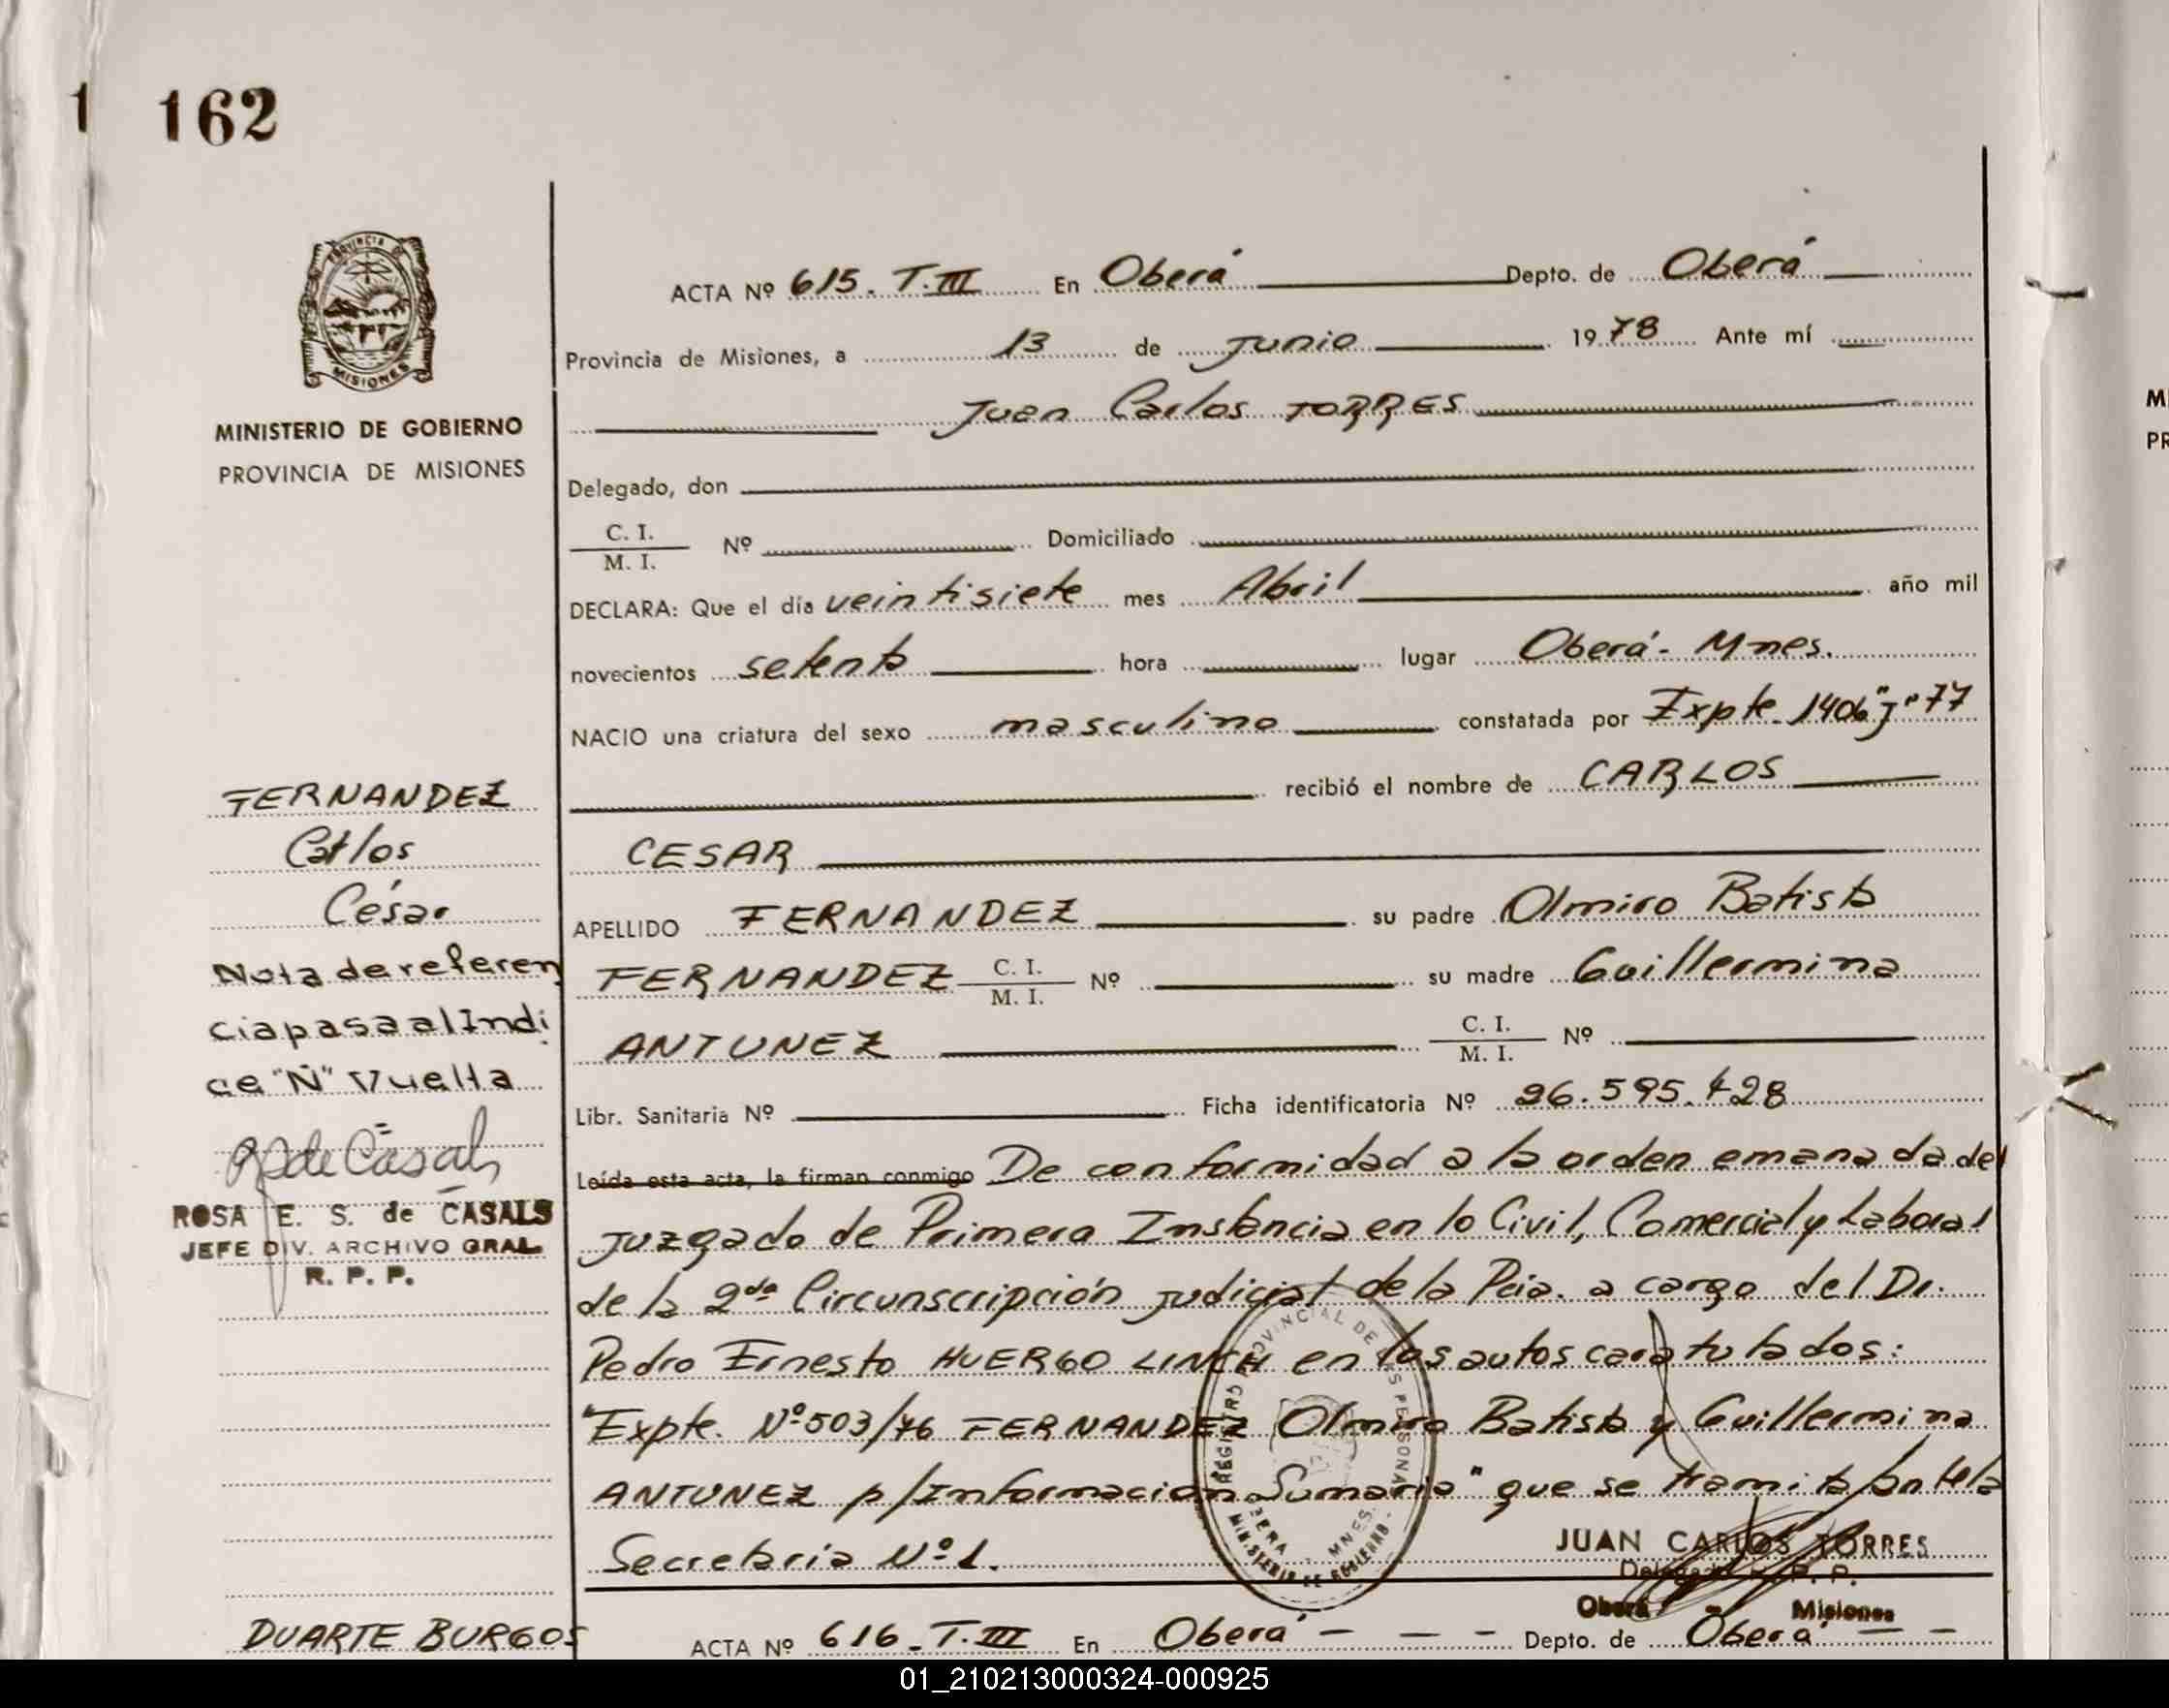 1 162
PROVINCIA DE
MISIONES
MINISTERIO DE GOBIERNO
PROVINCIA DE MISIONES
FERNANDEZ
Carlos
César
Nota de referen
cia pasa al Indi
ce "Ñ" Vuelta
ROSA E. S. de CASALS
JEFE DIV. ARCHIVO GRAL.
R. P. P.
DUARTE BURGOS
ACTA Nº 615. T.III En Oberá Depto. de Oberá
Provincia de Misiones, a 13 de Junio 1978 Ante mí
Juan Carlos TORRES
Delegado, don
C. I.
M. I. Nº Domiciliado
DECLARA: Que el día veintisiete mes Abril año mil
novecientos setenta hora lugar Oberá - Mnes.
NACIO una criatura del sexo masculino constatada por Expte. 1406"J"77
recibió el nombre de CARLOS
CESAR
APELLIDO FERNANDEZ su padre Olmiro Batista
FERNANDEZ C. I. M. I. Nº su madre Guillermina
ANTUNEZ C. I. M. I. Nº
Libr. Sanitaria Nº Ficha identificatoria Nº 26.595.428
Leída esta acta, la firman conmigo De conformidad a la orden emanada del
Juzgado de Primera Instancia en lo Civil, Comercial y Laboral
de la 2da Circunscripción Judicial de la Pcia. a cargo del Dr.
Pedro Ernesto HUERGO LINCH en los autos caratulados:
"Expte. Nº 503/76 FERNANDEZ Olmiro Batista y Guillermina
ANTUNEZ p/Información Sumaria" que se tramita ante la
Secretaria Nº 1.
REGISTRO PROVINCIAL DE LAS PERSONAS
OBERA - MNES.
MINISTERIO DE GOBIERNO
JUAN CARLOS TORRES
Delegado R. P. P.
Oberá Misiones
ACTA Nº 616. T.III En Oberá - - - Depto. de Oberá - -
M
PR
01_210213000324-000925